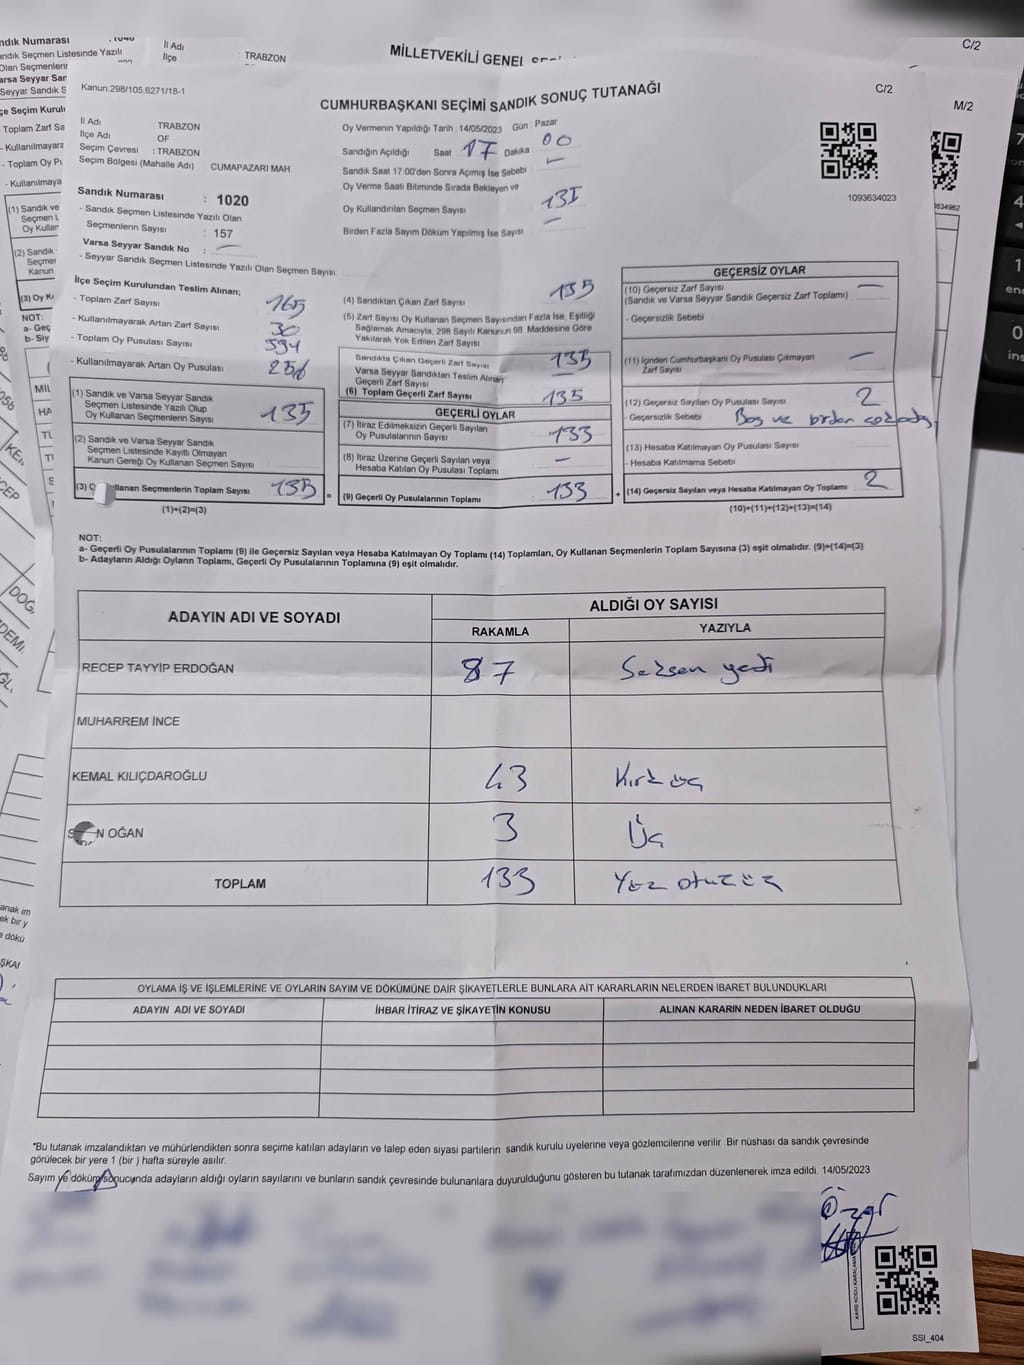 MİLLETVEKİLİ GENEL
C/2
M/2
Sandık Numarası
İl Adı
İlçe : TRABZON
Kanun,298/105,6271/18-1
CUMHURBAŞKANI SEÇİMİ SANDIK SONUÇ TUTANAĞI
C/2
İl Adı : TRABZON
İlçe Adı : OF
Seçim Çevresi : TRABZON
Seçim Bölgesi (Mahalle Adı) CUMAPAZARI MAH
Oy Vermenin Yapıldığı Tarih :14/05/2023 Gün : Pazar
Sandığın Açıldığı Saat 17 Dakika 00
Sandık Saat 17:00'den Sonra Açılmış İse Sebebi —
Oy Verme Saati Bitiminde Sırada Bekleyen ve
Oy Kullandırılan Seçmen Sayısı
Birden Fazla Sayım Döküm Yapılmış İse Sayısı —
1093634023
Sandık Numarası : 1020
- Sandık Seçmen Listesinde Yazılı Olan
Seçmenlerin Sayısı : 157
Varsa Seyyar Sandık No : —
- Seyyar Sandık Seçmen Listesinde Yazılı Olan Seçmen Sayısı
İlçe Seçim Kurulundan Teslim Alınan;
- Toplam Zarf Sayısı 165
- Kullanılmayarak Artan Zarf Sayısı 30
- Toplam Oy Pusulası Sayısı
- Kullanılmayarak Artan Oy Pusulası
(1) Sandık ve Varsa Seyyar Sandık
Seçmen Listesinde Yazılı Olup
Oy Kullanan Seçmenlerin Sayısı 135
(2) Sandık ve Varsa Seyyar Sandık
Seçmen Listesinde Kayıtlı Olmayan
Kanun Gereği Oy Kullanan Seçmen Sayısı
(3) Kullanan Seçmenlerin Toplam Sayısı 135 =
(1)+(2)=(3)
(4) Sandıktan Çıkan Zarf Sayısı 135
(5) Zarf Sayısı Oy Kullanan Seçmen Sayısından Fazla İse, Eşitliği
Sağlamak Amacıyla, 298 Sayılı Kanunun 98. Maddesine Göre
Yakılarak Yok Edilen Zarf Sayısı
Sandıkta Çıkan Geçerli Zarf Sayısı 135
Varsa Seyyar Sandıktan Teslim Alınan
Geçerli Zarf Sayısı —
(6) Toplam Geçerli Zarf Sayısı 135
GEÇERLİ OYLAR
(7) İtiraz Edilmeksizin Geçerli Sayılan
Oy Pusulalarının Sayısı 133
(8) İtiraz Üzerine Geçerli Sayılan veya
Hesaba Katılan Oy Pusulası Toplamı —
(9) Geçerli Oy Pusulalarının Toplamı 133 +
GEÇERSİZ OYLAR
(10) Geçersiz Zarf Sayısı —
(Sandık ve Varsa Seyyar Sandık Geçersiz Zarf Toplamı)
- Geçersizlik Sebebi
(11) İçinden Cumhurbaşkanı Oy Pusulası Çıkmayan
Zarf Sayısı —
(12) Geçersiz Sayılan Oy Pusulası Sayısı 2
- Geçersizlik Sebebi Boş ve birden
(13) Hesaba Katılmayan Oy Pusulası Sayısı
- Hesaba Katılmama Sebebi
(14) Geçersiz Sayılan veya Hesaba Katılmayan Oy Toplamı 2
(10)+(11)+(12)+(13)=(14)
NOT:
a- Geçerli Oy Pusulalarının Toplamı (9) ile Geçersiz Sayılan veya Hesaba Katılmayan Oy Toplamı (14) Toplamları, Oy Kullanan Seçmenlerin Toplam Sayısına (3) eşit olmalıdır. (9)+(14)=(3)
b- Adayların Aldığı Oyların Toplamı, Geçerli Oy Pusulalarının Toplamına (9) eşit olmalıdır.
ADAYIN ADI VE SOYADI
ALDIĞI OY SAYISI
RAKAMLA YAZIYLA
RECEP TAYYİP ERDOĞAN 87 Seksen yedi
MUHARREM İNCE
KEMAL KILIÇDAROĞLU 43 Kırk üç
OĞAN 3 Üç
TOPLAM 133 Yüz otuz üç
OYLAMA İŞ VE İŞLEMLERİNE VE OYLARIN SAYIM VE DÖKÜMÜNE DAİR ŞİKAYETLERLE BUNLARA AİT KARARLARIN NELERDEN İBARET BULUNDUKLARI
ADAYIN ADI VE SOYADI İHBAR İTİRAZ VE ŞİKAYETİN KONUSU ALINAN KARARIN NEDEN İBARET OLDUĞU
*Bu tutanak imzalandıktan ve mühürlendikten sonra seçime katılan adayların ve talep eden siyasi partilerin sandık kurulu üyelerine veya gözlemcilerine verilir .Bir nüshası da sandık çevresinde
görülecek bir yere 1 (bir ) hafta süreyle asılır.
Sayım ve döküm sonucunda adayların aldığı oyların sayılarını ve bunların sandık çevresinde bulunanlara duyurulduğunu gösteren bu tutanak tarafımızdan düzenlenerek imza edildi. 14/05/2023
SSI_404